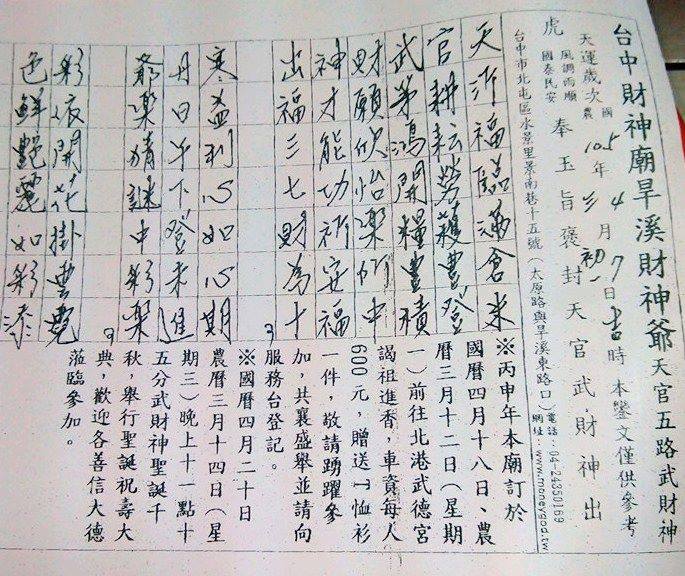 台中財神廟旱溪財神爺 天官五路武財神
天運歲次 國農 105年 4月 初一 7日 吉時 本鑾文僅供參考
風調雨順
國泰民安
奉玉旨褒封天官武財神出
虎
台中市北屯區水景里景南巷十五號(太原路與旱溪東路口)
電話:04-24350169
網址:www.moneygod.tw
天 福臨滿倉米
官耕耘勞獲豐登
武弟鴻開糧豐積
財願欣怡樂所中
神才能功祈安福
出福三七財為十
寒益利心如心期
丹日午下登未進
爺樂猜謎中彩樂
彩依開花掛雲霓
色鮮艷麗如彩漆
※丙申年本廟訂於
國曆四月十八日、農
曆三月十二日(星期
一)前往北港武德宮
謁祖進香,車資每人
600元,贈送T恤衫
一件,敬請踴躍參
加,共襄盛舉並請向
服務台登記。
※國曆四月二十日
農曆三月十四日(星
期三)晚上十一點十
五分武財神聖誕千
秋,舉行聖誕祝壽大
典,歡迎各善信大德
蒞臨參加。